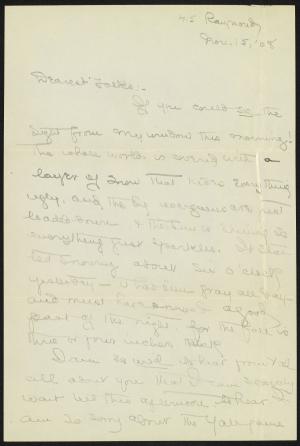 45 Raymond,
Nov. 15, '08
Dearest Folks:-
If you could see the
sight from my window this morning!
The whole world is covered with a
layer of snow that hides everything
ugly, and the big evergreens are just
loaded down & the sun is shining so
everything just sparkles. It star-
ted snowing about six o'clock
yesterday - it had been gray all day -
and must have snowed a good
part of the night, for the fall is
two or four inches deep
I am so to hear from you
all about you that I can scarcely
wait till this afternoon to hear. I
am so sorry about the Yale game